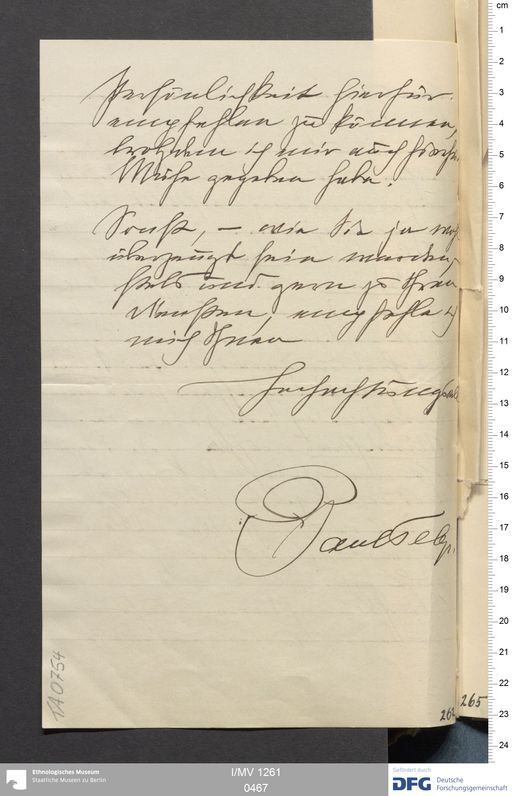 Persönlichkeit hierfür
empfehlen zu können,
trotzdem ich mir auch
Mühe gegeben habe.
Sonst, – wie Sie ja
überzeugt sein werden,
stets und gern zu Ihren
Diensten, empfehle
mich Ihnen
Hochachtungsvoll
Paul
TA0754
265
cm
1
2
3
4
5
6
7
8
9
10
11
12
13
14
15
16
17
18
19
20
21
22
23
24
Ethnologisches Museum
Staatliche Museen zu Berlin
I/MV 1261
0467
Gefördert durch
DFG Deutsche
Forschungsgemeinschaft